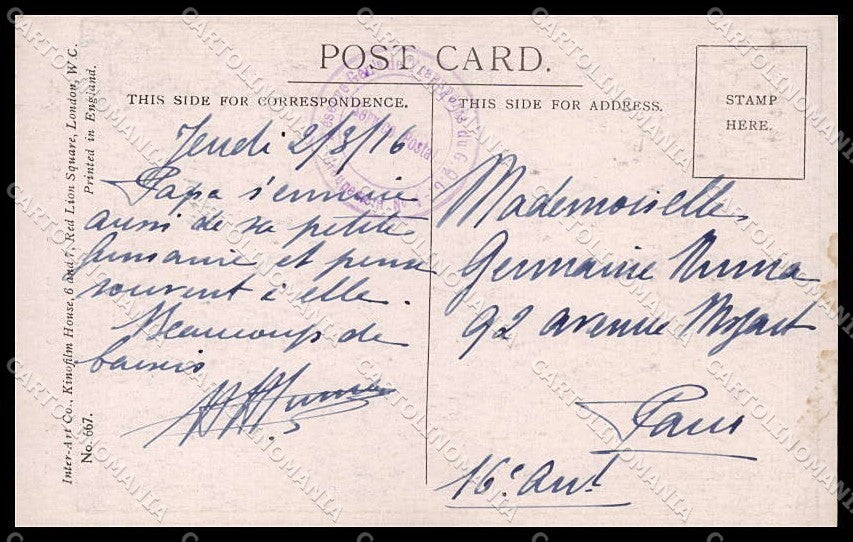 POST CARD.
THIS SIDE FOR CORRESPONDENCE.
THIS SIDE FOR ADDRESS.
STAMP
HERE.
Inter-Art Co., Kinofilm House, 6 and 7, Red Lion Square, London, W C.
Printed in England.
No. 667.
Jeudi 2/3/16
Papa s'ennuie
aussi de sa petite
Germaine et pense
souvent à elle.
Beaucoup de
baisers
Mademoiselle
Germaine
92 avenue Mozart
Paris
16e Arrt
Service Postal
du G.Q.G
CARTOLINOMANIA